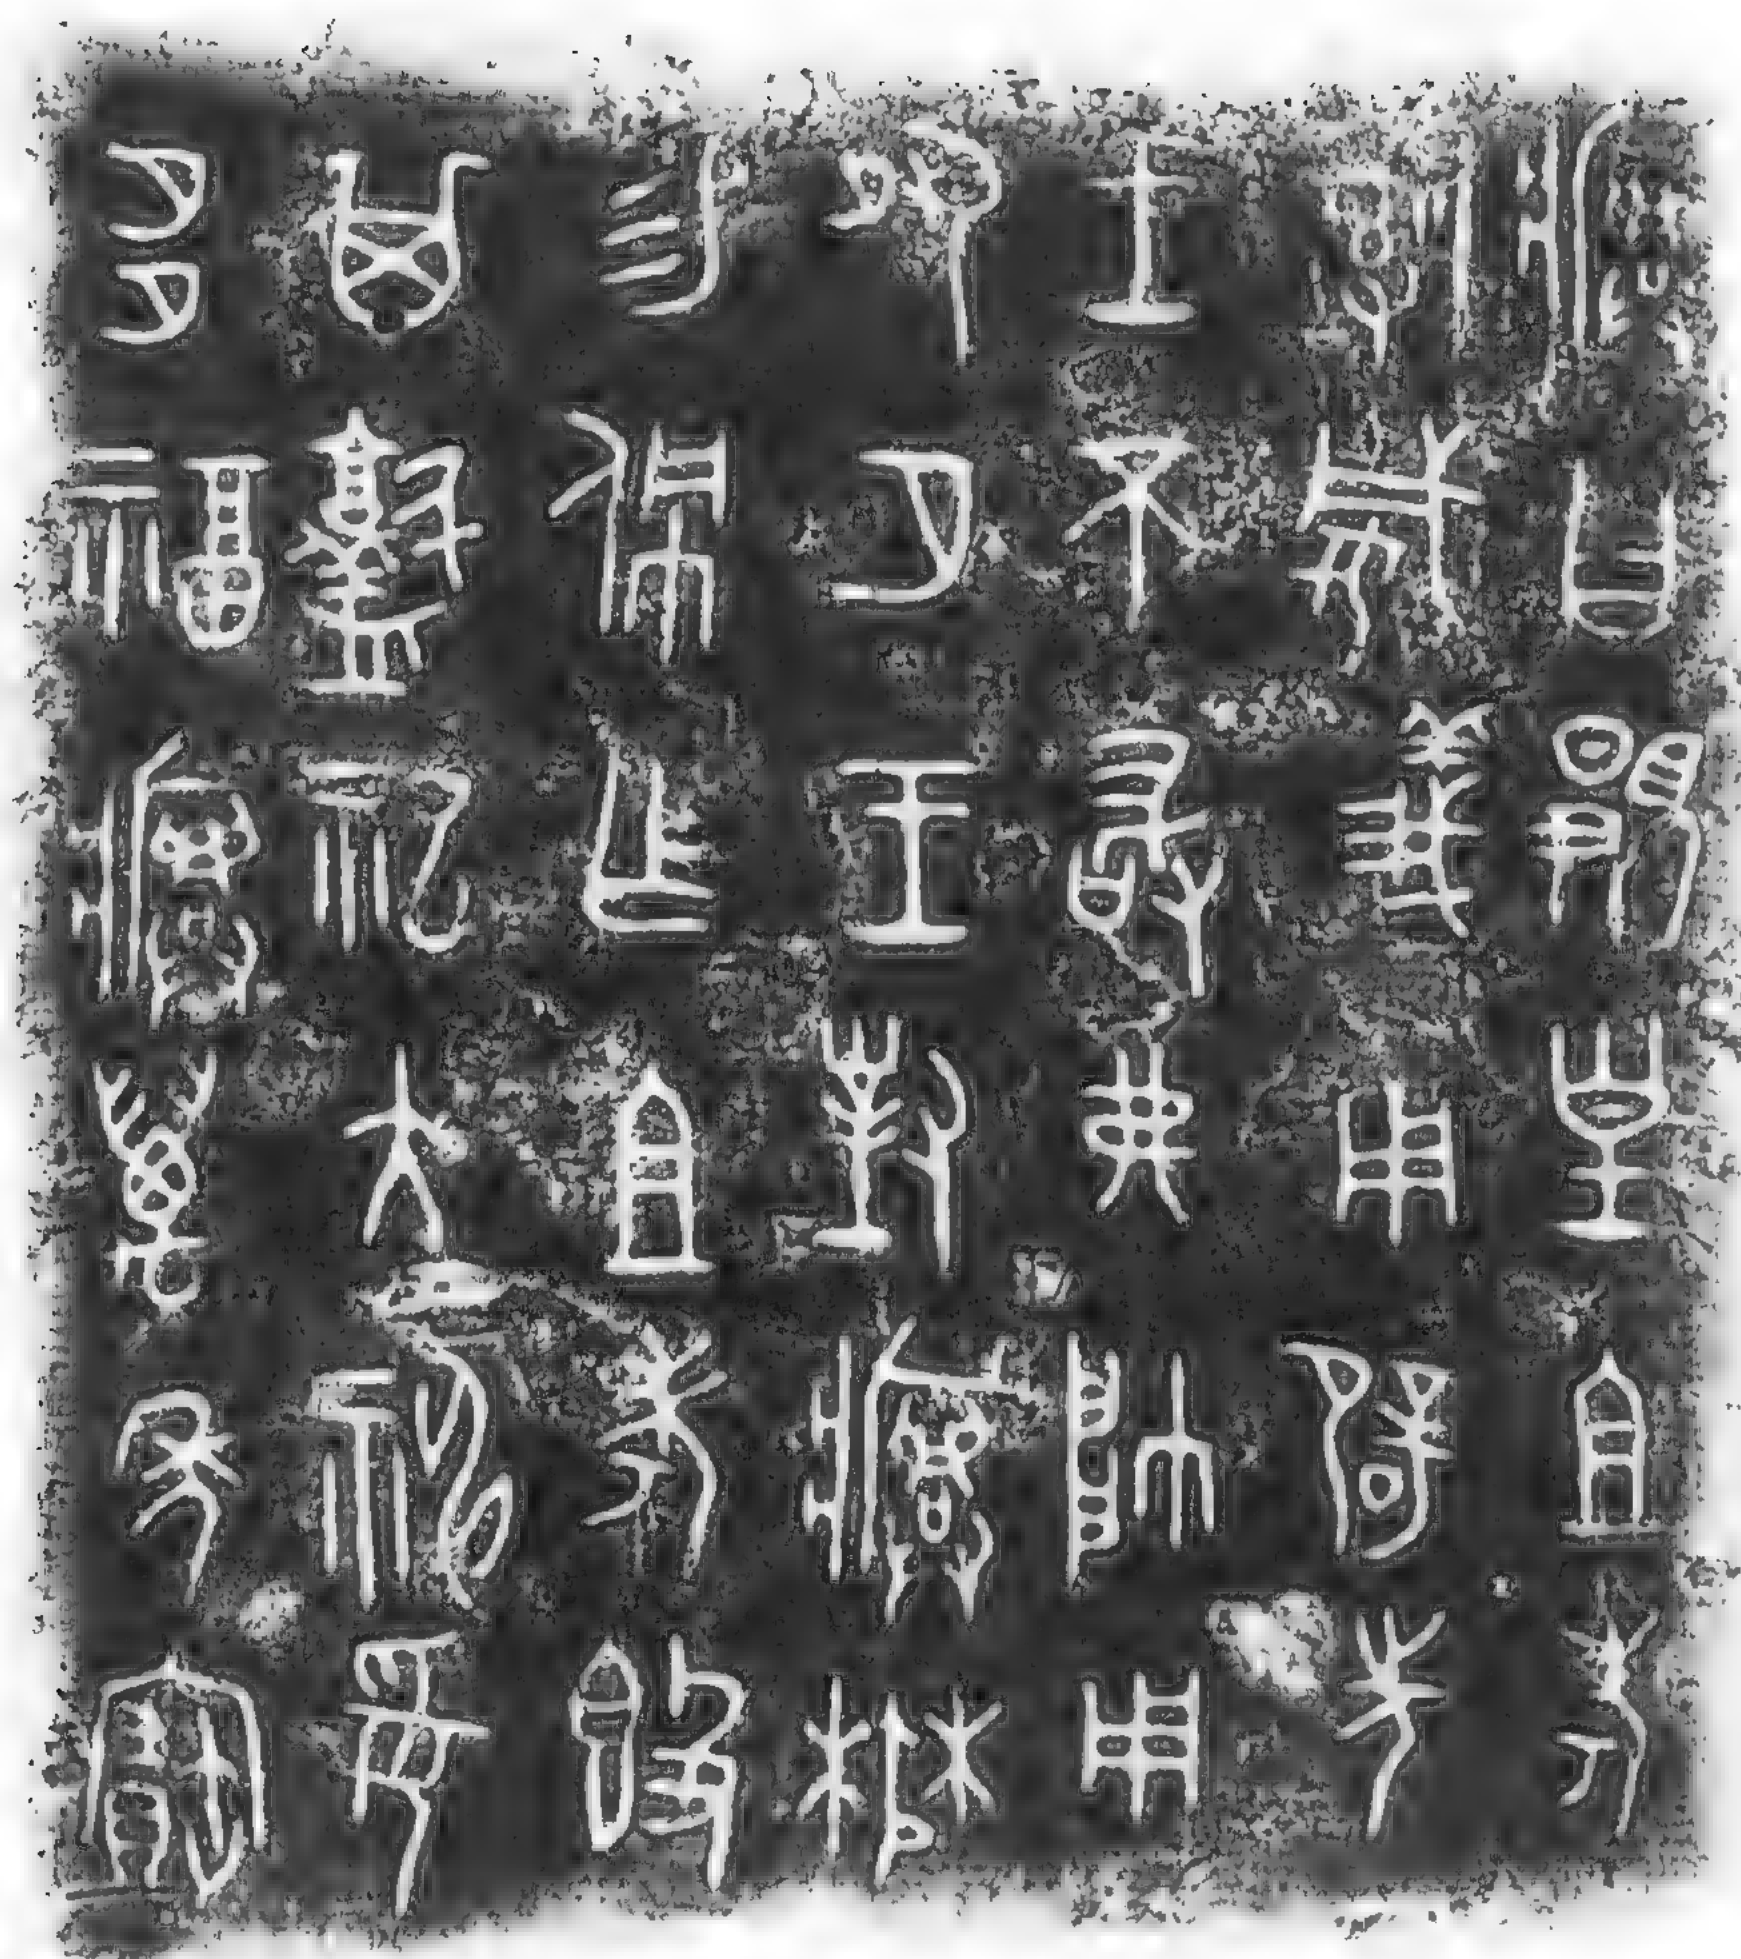 𤼈曰覭皇且考
𤔲威義用辟先
王不敢弗帥用
夙夕王對𤼈楙
易佩乍且考𣪘
其𩫖祀大神妥
多福𤼈萬年寶